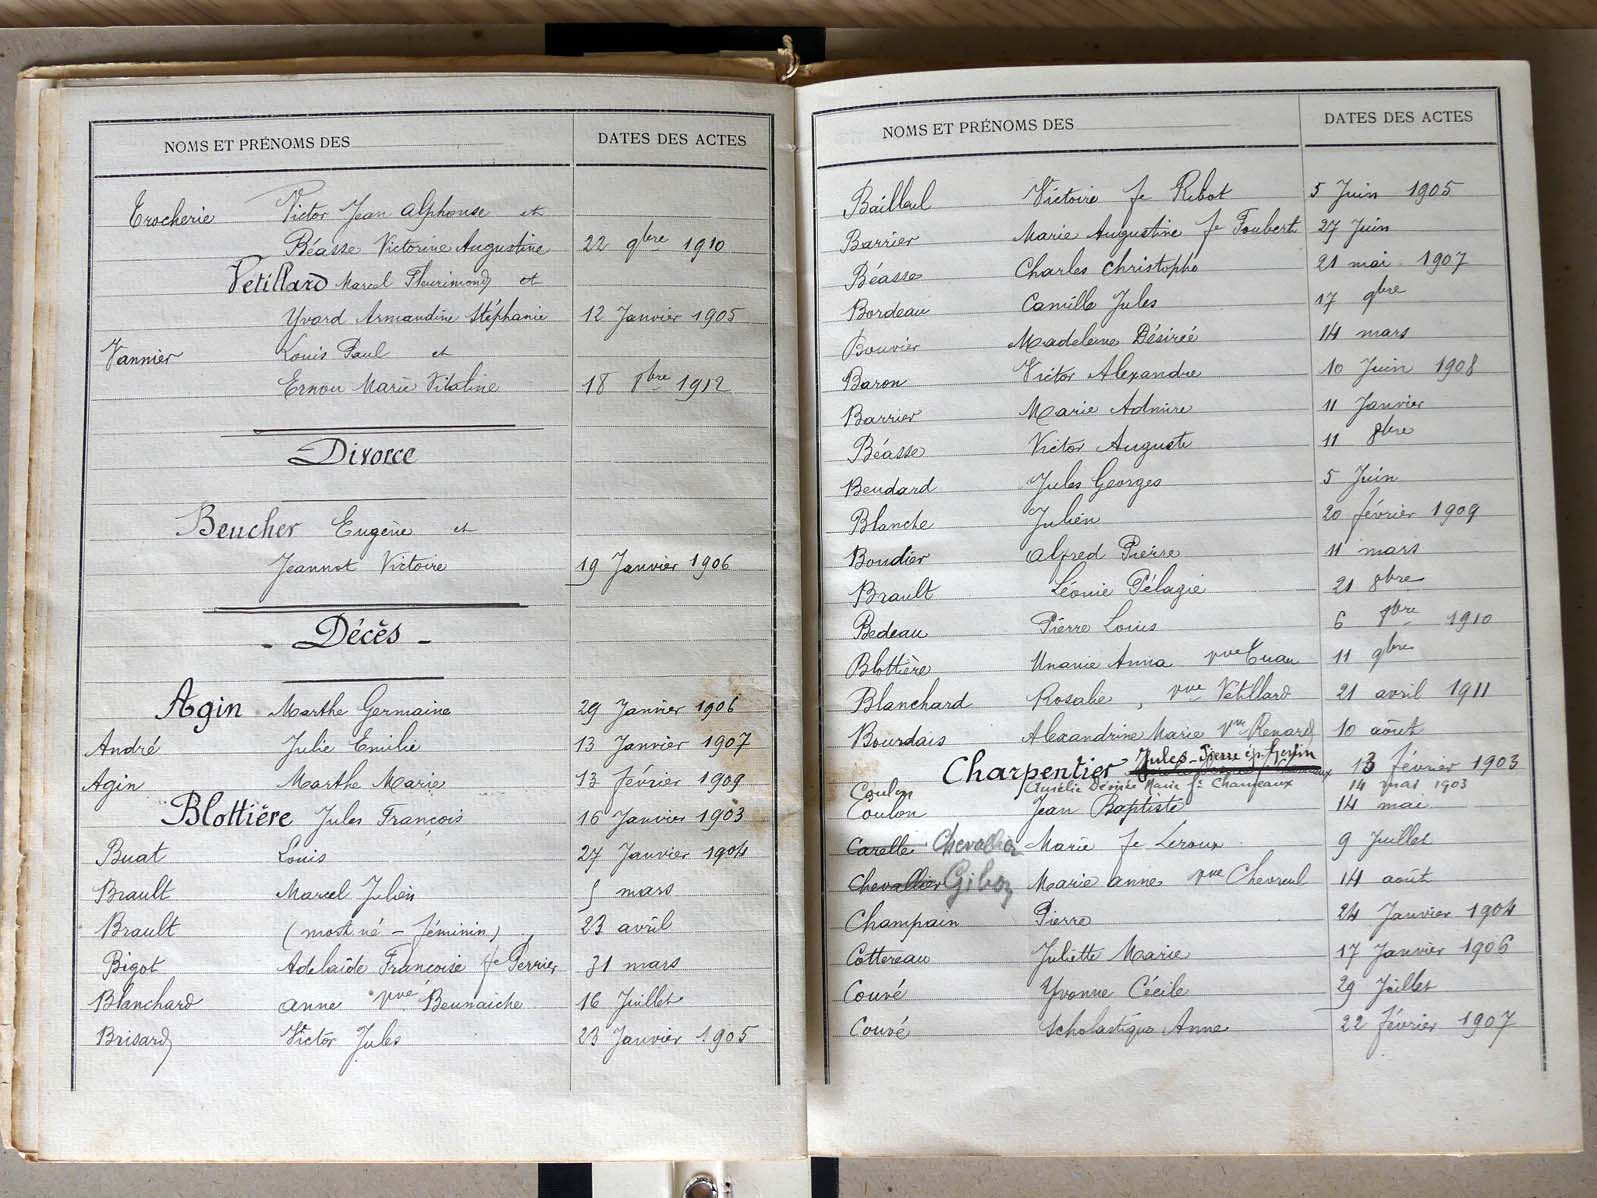 NOMS ET PRÉNOMS DES DATES DES ACTES
Trocherie Victor Jean Alphonse et
Béasse Victorine Augustine 22 9bre 1910
Vetillard Marcel Fleurimond et
Yvard Armandine Stéphanie 12 Janvier 1905
Vannier Louis Paul et
Ernou Marie Vitaline 18 8bre 1912
Divorce
Beucher Eugène et
Jeannot Victoire 19 Janvier 1906
- Décès -
Agin Marthe Germaine 29 Janvier 1906
André Julie Emilie 13 Janvier 1907
Agin Marthe Marie 13 février 1909
Blottière Jules François 16 Janvier 1903
Buat Louis 27 Janvier 1904
Brault Marcel Julien 5 mars
Brault (mort né - féminin) 23 avril
Bigot Adelaïde Françoise fe Perrier 31 mars
Blanchard anne vve Beunaiche 16 Juillet
Brisard Victor Jules 23 Janvier 1905
NOMS ET PRÉNOMS DES DATES DES ACTES
Bailleul Victoire fe Ribot 5 Juin 1905
Barrier Marie Augustine fe Foubert 27 Juin
Béasse Charles Christophe 21 mai 1907
Bordeau Camille Jules 17 9bre
Bouvier Madeleine Désirée 14 mars
Baron Victor Alexandre 10 Juin 1908
Barrier Marie Admire 11 Janvier
Béasse Victor Auguste 11 8bre
Beudard Jules Georges 5 Juin
Blanche Julien 20 février 1909
Boudier Alfred Pierre 11 mars
Brault Léonie Pélagie 21 8bre
Bedeau Pierre Louis 6 8bre 1910
Blottière Unanie Anna vve Cuau 11 9bre
Blanchard Rosalie, vve Vétillard 21 avril 1911
Bourdais Alexandrine Marie Vve Renard 10 août
Charpentier Jules-Pierre 13 février 1903
Coulon Aurélie Désirée Marie fe Champeaux 14 mai 1903
Coulon Jean Baptiste 14 mai
Carelle Chevallier Marie fe Leroux 9 Juillet
Chevallier Gibon Marie anne vve Chevreul 14 août
Champain Pierre 24 Janvier 1904
Cottereau Juliette Marie 17 Janvier 1906
Couvé Yvonne Cécile 29 Juillet
Couvé Scholastique Anne 22 février 1907